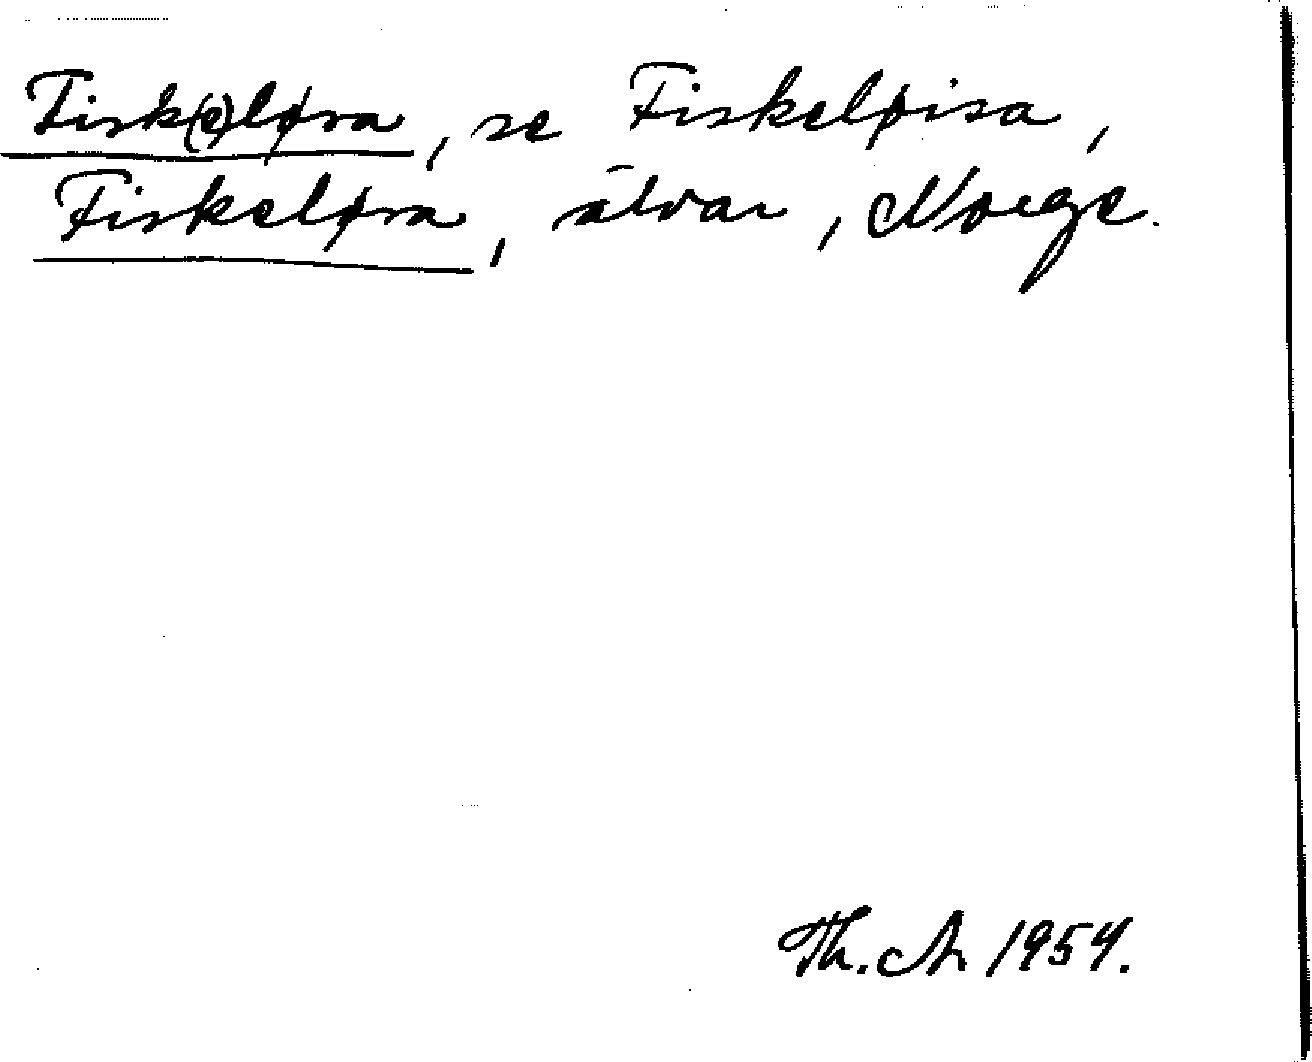 Fisk(e)løsa, se Fiskeløisa,
Fiskeløsa, älvar, Norge.
Th. A 1954.